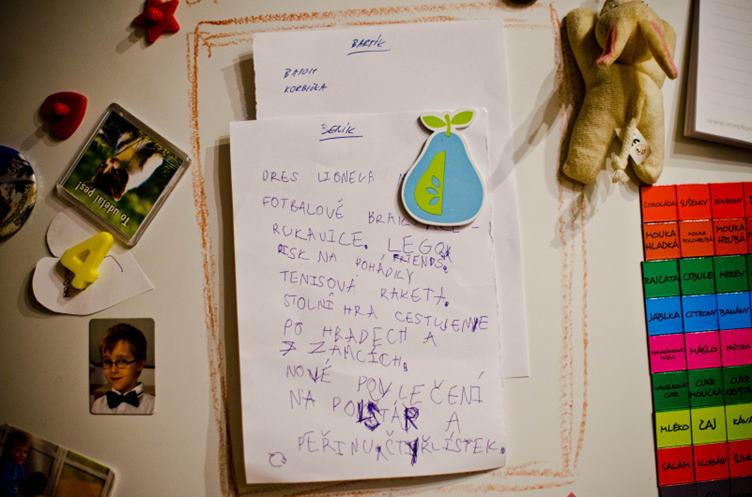 BARTÍK
BATOH
KOBLIŽKA
BENÍK
DRES LIONELA
FOTBALOVÉ BRAN
RUKAVICE. LEGO
FRIENDS.
DISK NA POHÁDKY
TENISOVÁ RAKETA.
STOLNÍ HRA CESTUJEME
PO HRADECH A
ZÁMCÍCH.
NOVÉ POVLEČENÍ
NA POLŠTÁŘ A
PEŘINU. ČTYŘLÍSTEK.
To udělal pes!
4
ČOKOLÁDA SUŠENKY BONBONY
MOUKA HLADKÁ MOUKA POLOHRUBÁ MOUKA HRUBÁ
RAJČATA CIBULE MRKEV
JABLKA CITRONY BANÁNY
MÁSLO PAŠTIKA
VANILKOVÝ CUKR CUKR MOUČKA CUKR KRYSTAL
MLÉKO ČAJ KÁVA
SALÁM KLOBÁSY ŠUNKA